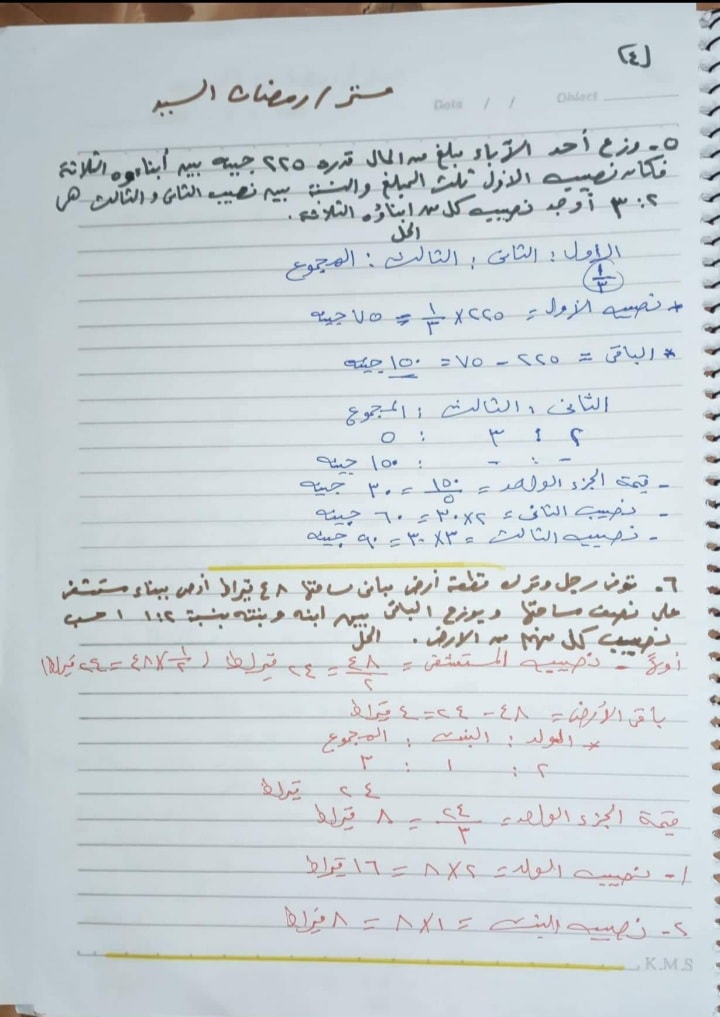 (٤)
مستر / رمضان السيد
Date / / Object
٥- وزع أحد الآباء مبلغ من المال قدره ٢٢٥ جنيه بين أبناءوه الثلاثة
فكان نصيب الأول ثلث المبلغ والنسبة بين نصيب الثانى والثالث هى
٢ : ٣ أوجد نصيب كل من ابناؤه الثلاثة.
الحل
الأول : الثانى : الثالث : المجموع
١/٣
* نصيب الأول = ٢٢٥ × ١/٣ = ٧٥ جنيه
* الباقى = ٢٢٥ - ٧٥ = ١٥٠ جنيه
الثانى : الثالث : المجموع
٢ : ٣ : ٥
- : - : ١٥٠ جنيه
- قيمة الجزء الواحد = ١٥٠/٥ = ٣٠ جنيه
- نصيب الثانى = ٢ × ٣٠ = ٦٠ جنيه
- نصيب الثالث = ٣ × ٣٠ = ٩٠ جنيه
٦- توفى رجل وترك قطعة أرض مبانى مساحتها ٤٨ قيراط أوصى ببناء مستشفى
على نصف مساحتها ويوزع الباقى بين ابنه وبنته بنسبة ٢:١ احسب
نصيب كل منهم من الأرض. الحل
أولاً - نصيب المستشفى = ٤٨/٢ = ٢٤ قيراط (١/٢ × ٤٨ = ٢٤ قيراط)
باقى الأرض = ٤٨ - ٢٤ = ٢٤ قيراط
* الولد : البنت : المجموع
٢ : ١ : ٣
٢٤ قيراط
قيمة الجزء الواحد = ٢٤/٣ = ٨ قيراط
١- نصيب الولد = ٢ × ٨ = ١٦ قيراط
٢- نصيب البنت = ١ × ٨ = ٨ قيراط
K.M.S